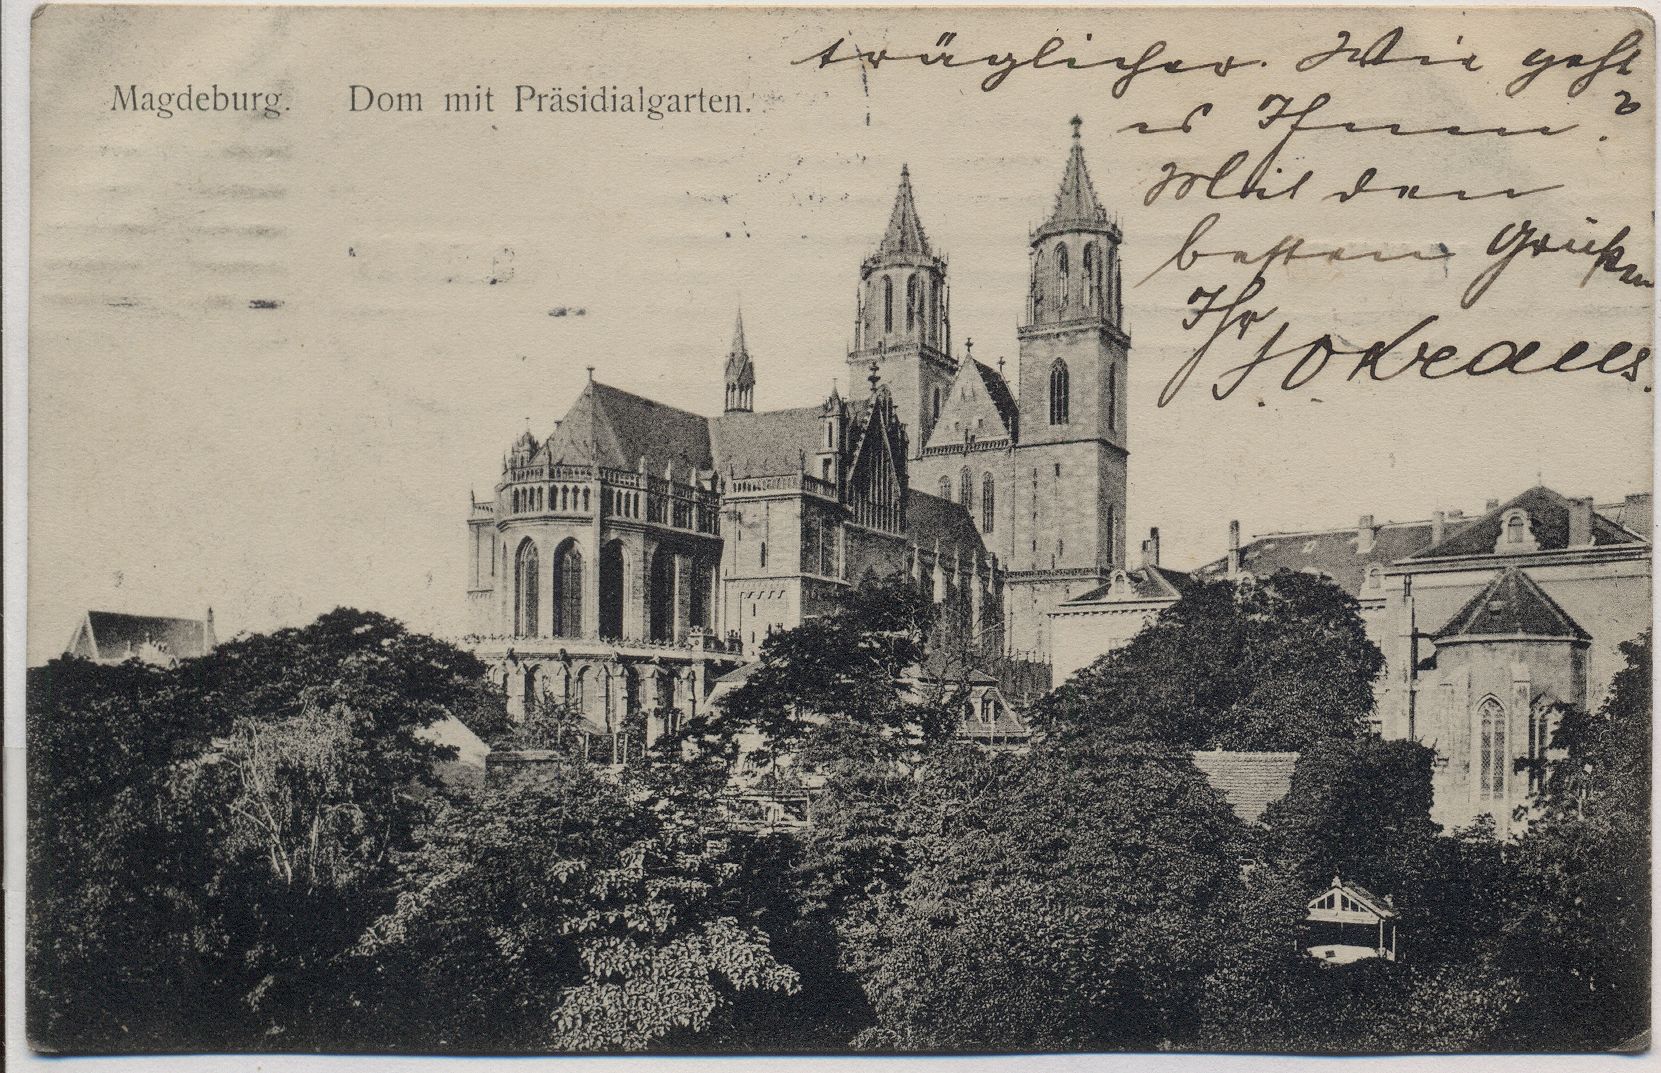 Magdeburg. Dom mit Präsidialgarten.
träglicher. Wie geht
es Ihnen?
Mit den
besten Grüßen
Ihr